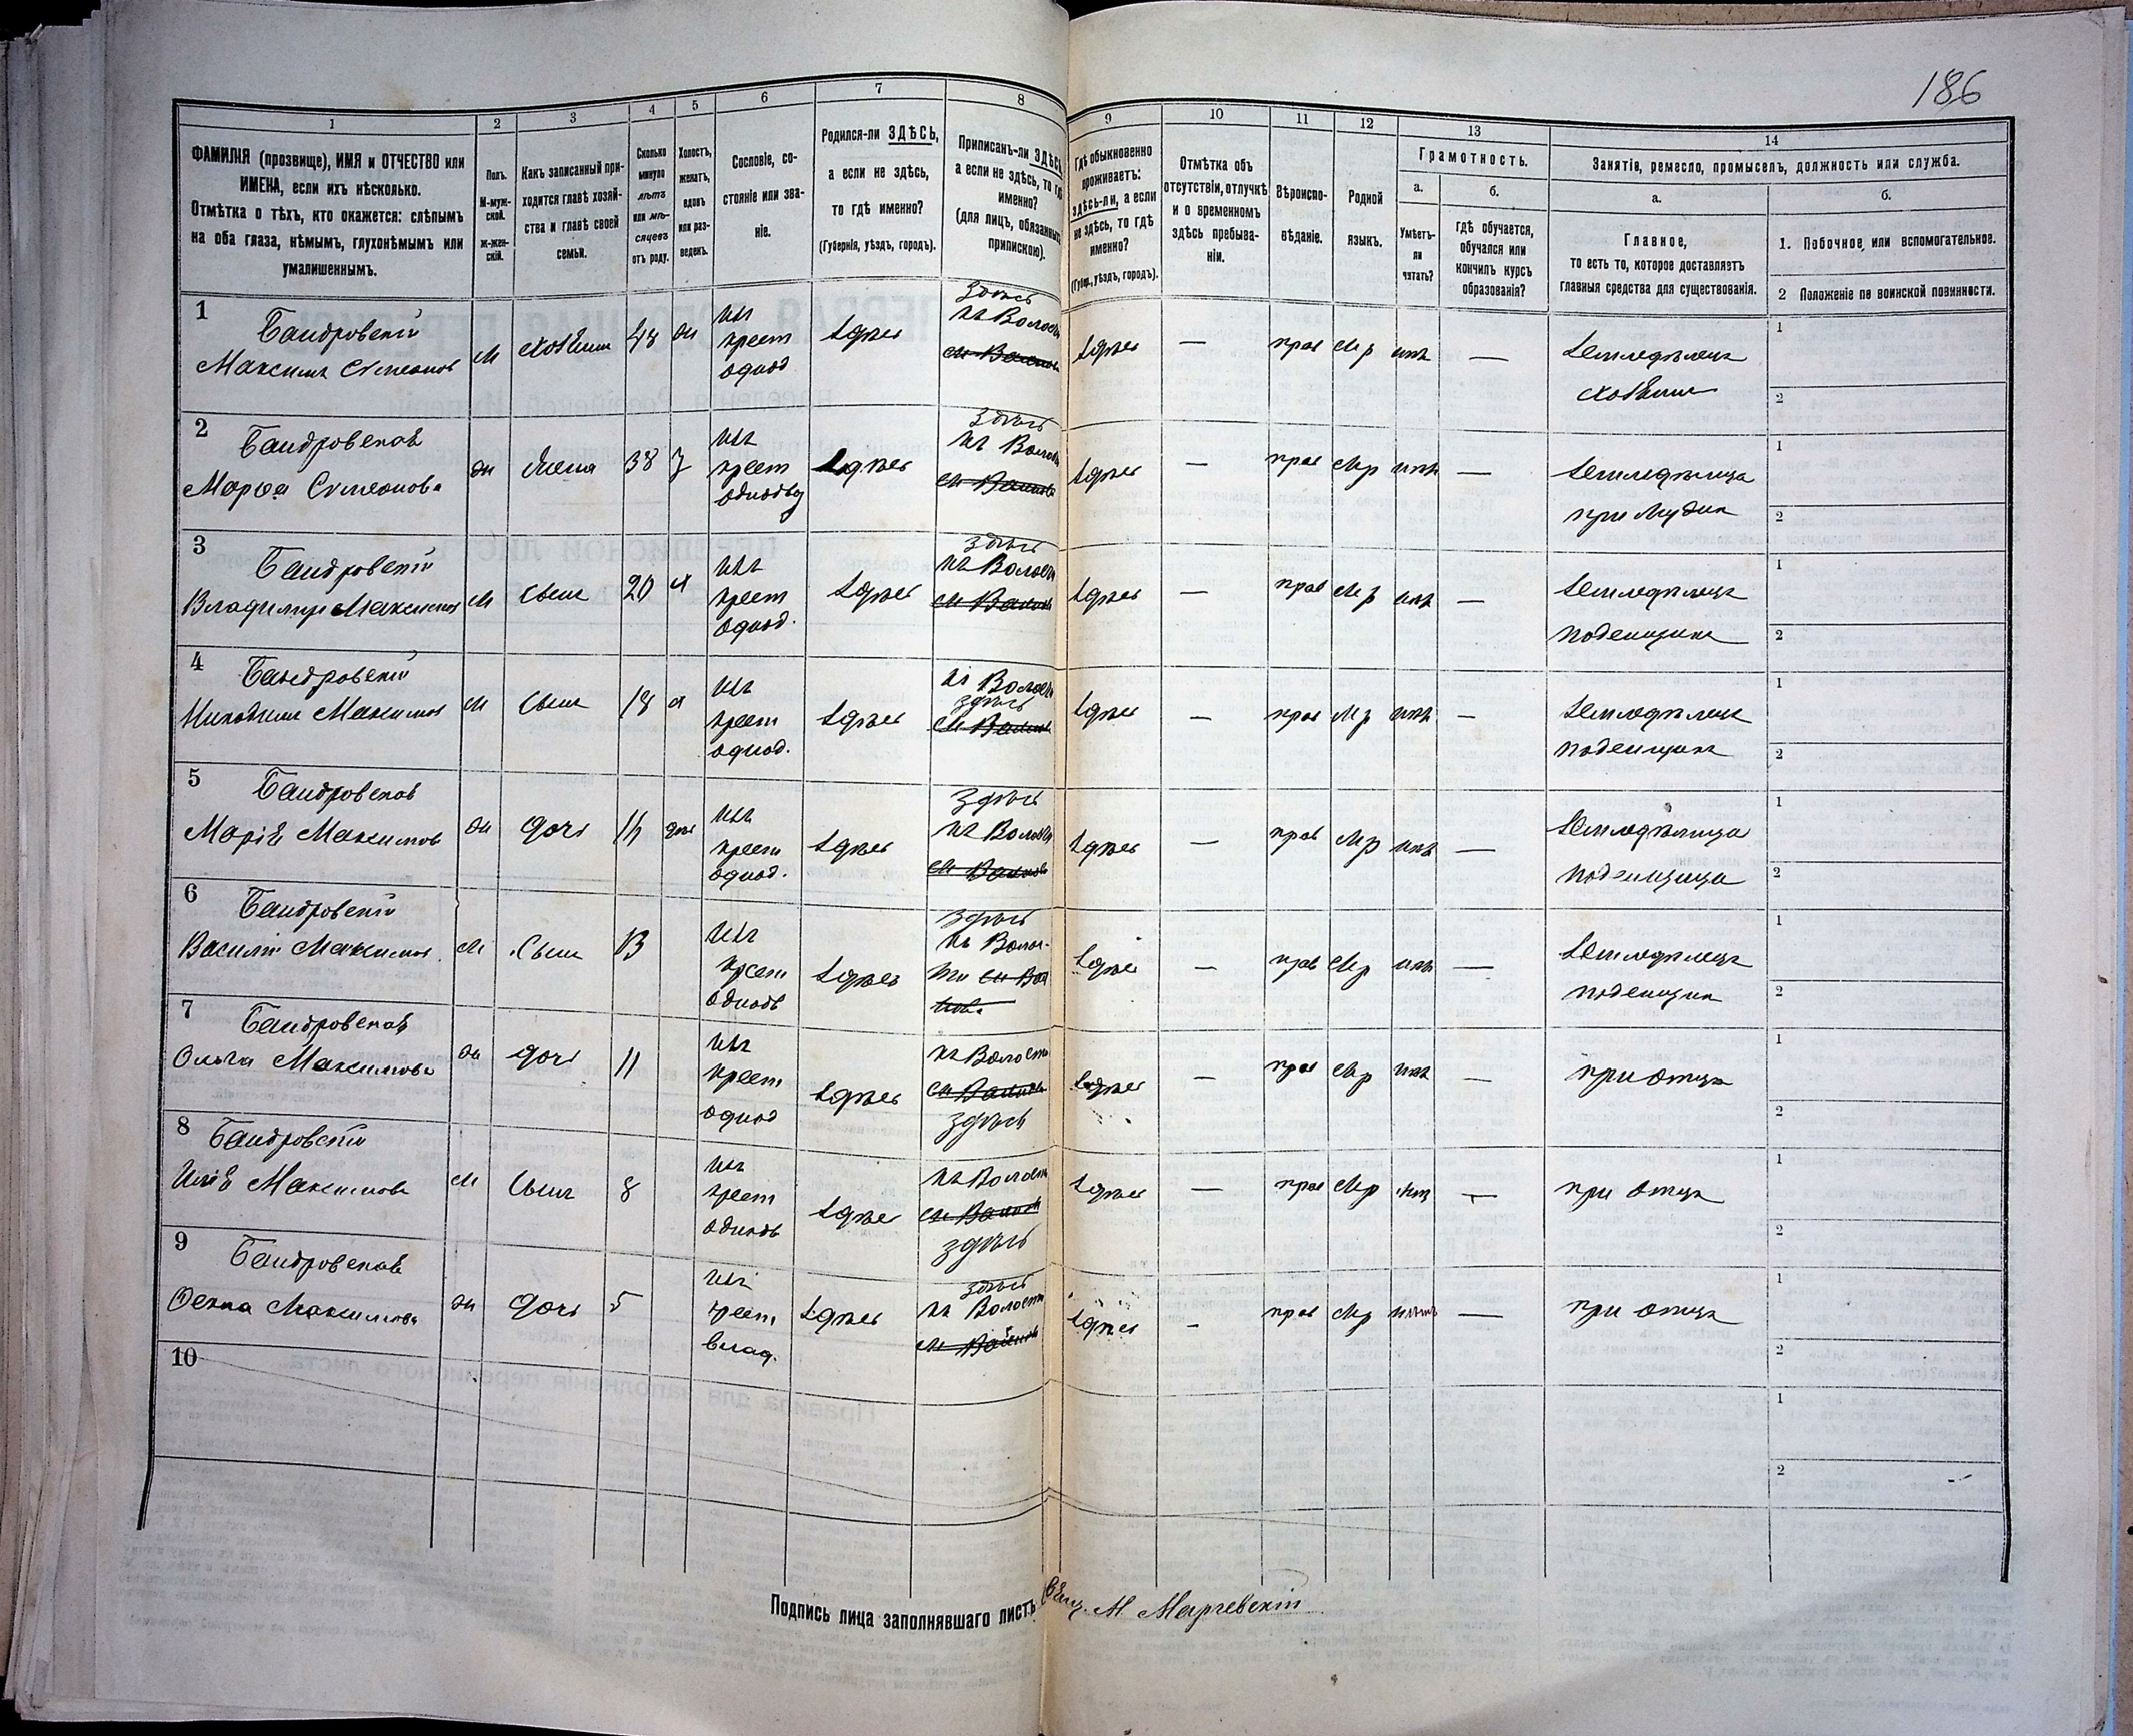 186
1
2
3
4
5
6
7
8
9
10
11
12
13
14
ФАМИЛІЯ (прозвище), ИМЯ и ОТЧЕСТВО или
ИМЕНА, если ихъ нѣсколько.
Отмѣтка о тѣхъ, кто окажется: слѣпымъ
на оба глаза, нѣмымъ, глухонѣмымъ или
умалишеннымъ.
Полъ.
М-муж-
ской.
ж-жен-
скій.
Какъ записанный при-
ходится главѣ хозяй-
ства и главѣ своей
семьи.
Сколько
минуло
лѣтъ
или мѣ-
сяцевъ
отъ роду.
Холостъ,
женатъ,
вдовъ
или раз-
веденъ.
Сословіе, со-
стояніе или зва-
ніе.
Родился-ли ЗДѢСЬ,
а если не здѣсь,
то гдѣ именно?
(Губернія, уѣздъ, городъ).
Приписанъ-ли ЗДѢСЬ,
а если не здѣсь, то гдѣ
именно?
(для лицъ, обязанныхъ
припискою).
Гдѣ обыкновенно
проживаетъ:
здѣсь-ли, а если
не здѣсь, то гдѣ
именно?
(Губерн., уѣздъ, городъ).
Отмѣтка объ
отсутствіи, отлучкѣ
и о временномъ
здѣсь пребыва-
ніи.
Вѣроиспо-
вѣданіе.
Родной
языкъ.
Грамотность.
а.
б.
Умѣетъ-
ли
читать?
гдѣ обучается,
обучался или
кончилъ курсъ
образованія?
Занятіе, ремесло, промыселъ, должность или служба.
а.
б.
Главное,
то есть то, которое доставляетъ
главныя средства для существованія.
1. Побочное или вспомогательное.
2 Положеніе по воинской повинности.
1
Бандровскій
Максимъ Симеонов
м
хозяинъ
48
жн
изъ
крест
однод
здѣсь
здѣсь
къ Волости
здѣсь
—
прав
Мр
нѣтъ
—
земледѣлецъ
хозяинъ
1
2
2
Бандровская
Марѳа Симеонова
жн
жена
38
з
изъ
крест
однодв
здѣсь
здѣсь
къ Волости
здѣсь
—
прав
Мр
нѣтъ
—
земледѣлица
при мужѣ
1
2
3
Бандровскій
Владимир Максимов
м
сынъ
20
х
изъ
крест
однод.
здѣсь
здѣсь
къ Волости
здѣсь
—
прав
Мр
нѣтъ
—
земледѣлецъ
поденщикъ
1
2
4
Бандровскій
Никодимъ Максимов
м
сынъ
18
х
изъ
крест
однод.
здѣсь
къ Волости
здѣсь
здѣсь
—
прав
Мр
нѣтъ
—
земледѣлецъ
поденщикъ
1
2
5
Бандровская
Марія Максимов
жн
дочь
изъ
крест
однод.
здѣсь
здѣсь
къ Волости
здѣсь
—
прав
Мр
нѣтъ
—
земледѣлица
поденщица
1
2
6
Бандровскій
Василій Максимов.
м
сынъ
13
изъ
крест
однодв
здѣсь
здѣсь
къ Волос-
ти
здѣсь
—
прав
Мр
нѣтъ
—
земледѣлецъ
поденщик
1
2
7
Бандровская
Ольга Максимова
жн
дочь
11
изъ
крест
однод
здѣсь
къ Волости
здѣсь
здѣсь
—
прав
Мр
нѣтъ
—
при отцѣ
1
2
8
Бандровскій
Илія Максимова
м
сынъ
8
изъ
крест
однодв
здѣсь
къ Волости
здѣсь
здѣсь
—
прав
Мр
нѣт
—
при отцѣ
1
2
9
Бандровская
Максимова
жн
дочь
5
изъ
крест
здѣсь
здѣсь
къ Волости
здѣсь
-
прав
Мр
нѣтъ
—
при отцѣ
1
2
10
1
2
Подпись лица заполнявшаго листъ